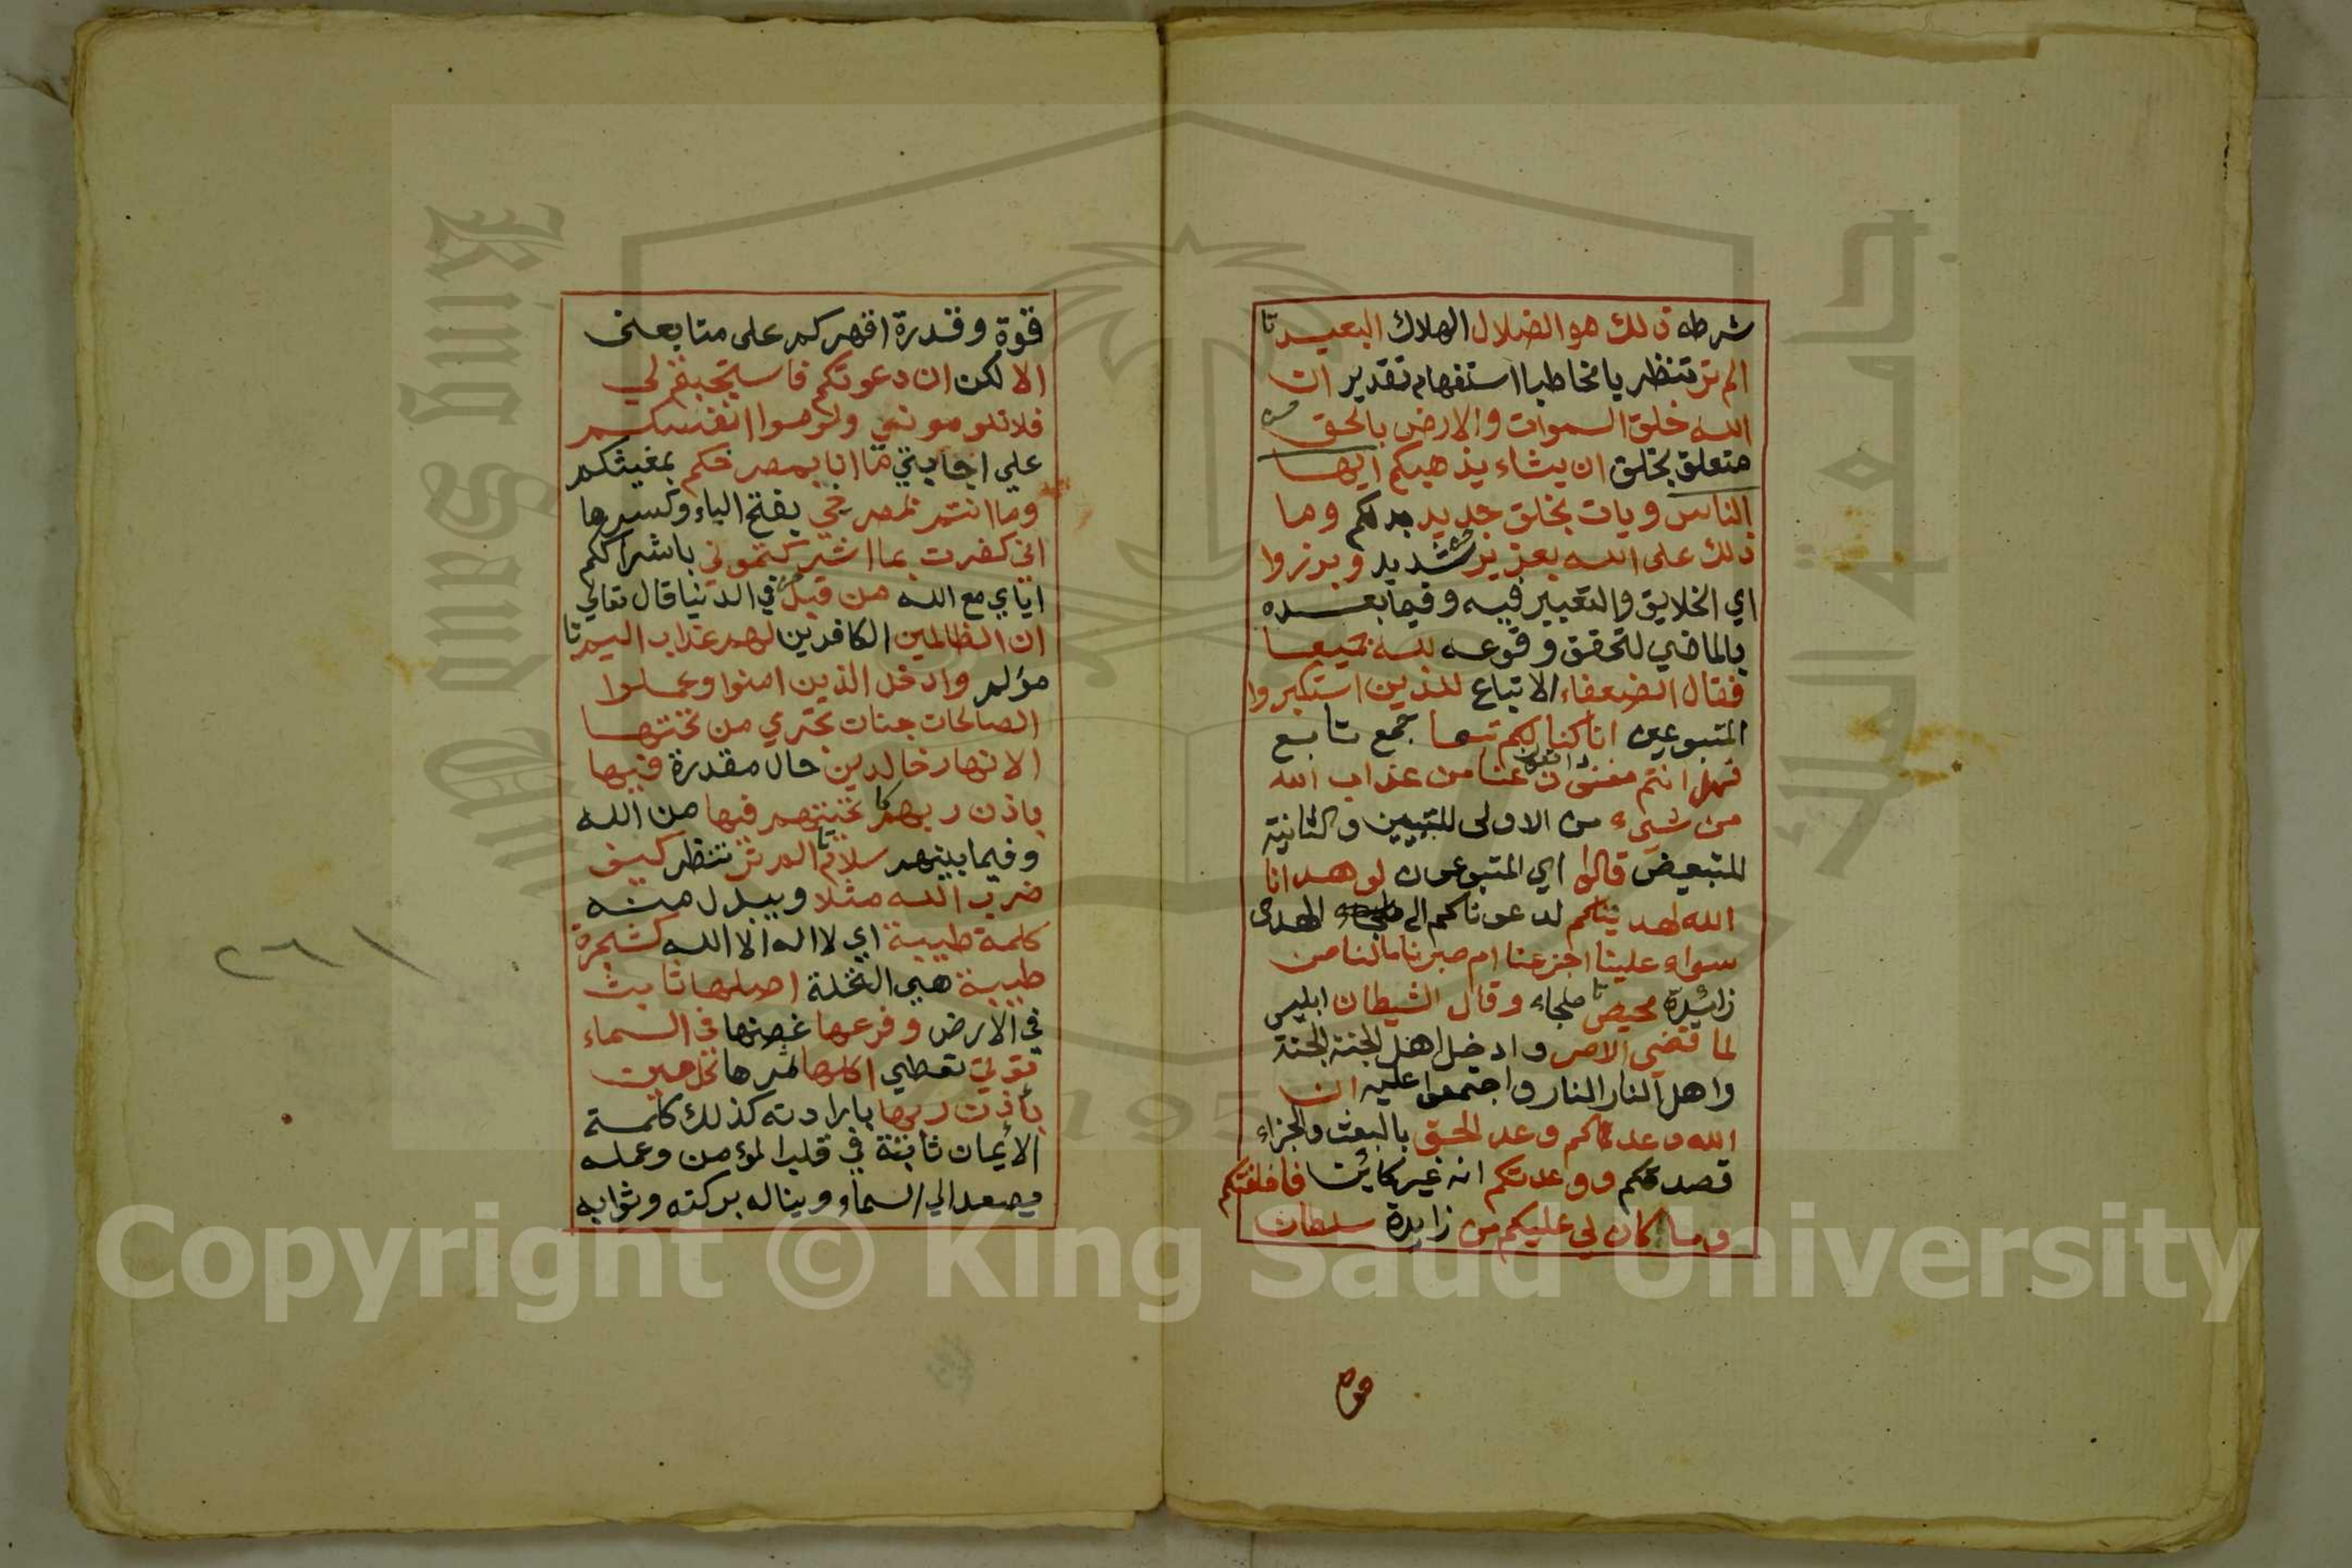 شرطه ذلك هو الضلال الهلاك البعيد
الم تر تنظر يا مخاطبا استفهام تقدير ان
الله خلق السموات والارض بالحق
متعلق بخلق ان يشاء يذهبكم ايها
الناس ويات بخلق جديد بدلكم وما
ذلك على الله بعزيز شديد وبرزوا
اي الخلايق والتعبير فيه وفيما بعده
بالماضي لتحقق وقوعه لله جميعا
فقال الضعفاء الاتباع للذين استكبروا
المتبوعين انا كنا لكم تبعا جمع تابع
فهل انتم مغنون دافعون عنا من عذاب الله
من شيء من الاولى للتبيين والثانية
للتبعيض قالوا اي المتبوعون لو هدانا
الله لهديناكم لدعوناكم الى الهدى
سواء علينا اجزعنا ام صبرنا مالنا من
زائدة محيص ملجاء وقال الشيطان ابليس
لما قضي الامر وادخل اهل الجنة الجنة
واهل النار النار واجتمعوا عليه ان
الله وعدكم وعد الحق بالبعث والجزاء
فصدقكم ووعدتكم انه غير كاين فاخلفتكم
وما كان لي عليكم من زايدة سلطان
قوة وقدرة اقهركم على متابعتى
الا لكن ان دعوتكم فاستجبتم لي
فلا تلوموني ولوموا انفسكم
علي اجابتي ما انا بمصرخكم بمغيثكم
وما انتم بمصرخي بفتح الياء وكسرها
انى كفرت بما اشركتموني باشراككم
اياي مع الله من قبل في الدنيا قال تعالي
ان الظالمين الكافرين لهم عذاب اليم
مؤلم وادخل الذين امنوا وعملوا
الصالحات جنات تجري من تحتها
الانهار خالدين حال مقدرة فيها
باذن ربهم تحيتهم فيها من الله
وفيما بينهم سلام الم تر تنظر كيف
ضرب الله مثلا ويبدل منه
كلمة طيبة اي لا اله الا الله كشجرة
طيبة هي النخلة اصلها ثابت
في الارض وفرعها غصنها في السماء
تؤتي تعطي اكلها ثمرها كل حين
باذن ربها بارادته كذلك كلمة
الايمان ثابتة في قلب المؤمن وعمله
يصعد الي السماء ويناله بركته وثوابه
٢٦١
King Saud University
1957
Copyright © King Saud University